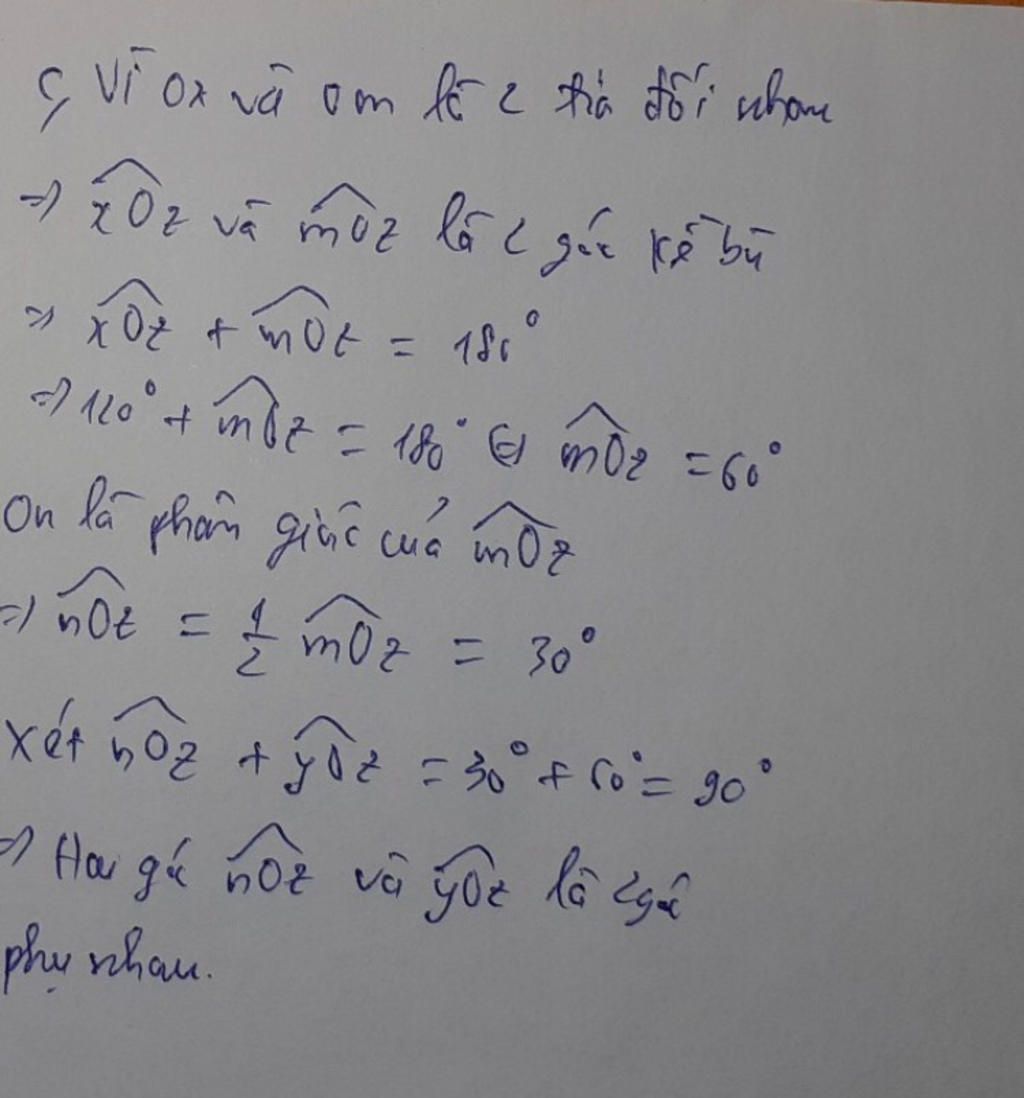 c, Vì Ox và Om là 2 tia đối nhau
=> xOz và mOz là 2 góc kề bù
=> xOz + mOz = 180°
=> 120° + mOz = 180° <=> mOz = 60°
On là phân giác của mOz
=> nOz = 1/2 mOz = 30°
Xét nOz + yOz = 30° + 60° = 90°
=> Hai góc nOz và yOz là 2 góc
phụ nhau.